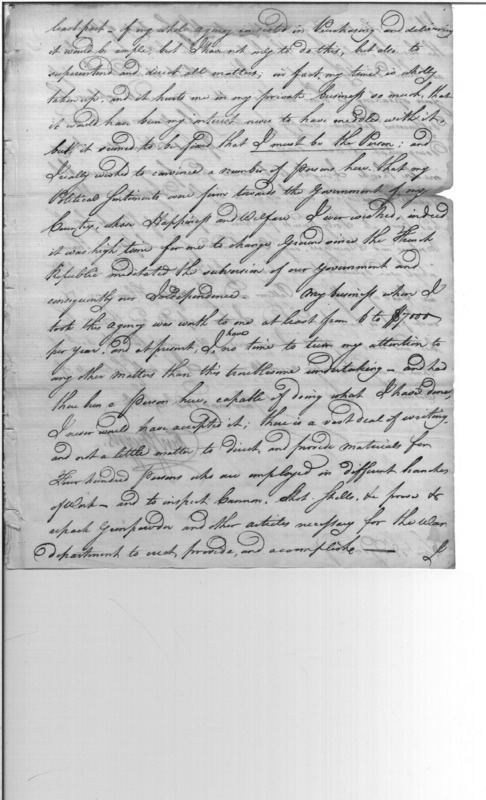 least part – if my whole agency in purchasing and delivering
it would be ample, but I have not only to do this, but also to
superintend and direct all matters; in fact, my time is wholly
taken up, and it hurts me in my private business so much, that
it would have been my interest never to have meddled with it,
but it seemed to be fixed that I must be the Person; and
I really wished to convince a number of Persons here, that my
Political Sentiments were firm towards the Government of my
Country, whose Happiness and Welfare I ever wished, indeed
it was high time for me to change Ground since the French
Republic the subversion of our Government and
consequently our Independence. My business when I
took this agency was worth to me at least from 6 to $7000
per year, and at present, I have no time to turn my attention to
any other matters than this troublesome undertaking – and had
there been a Person here, capable of doing what I have done,
I never would have accepted it; there is a vast deal of writing,
and not a little matter to direct, and provide materials for
Four hundred Persons who are employed in different branches
of Work – and to inspect Cannon, Shot, Shells, &c prove &
repack Gunpowder and other articles necessary for the War
department to erect, provide, and accomplish. —
I